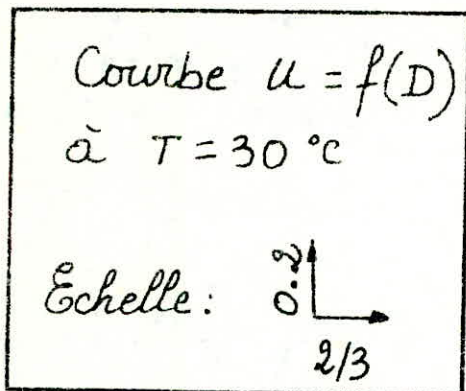 Courbe u = f(D)
à T = 30 °C
Echelle: 0.2
2/3